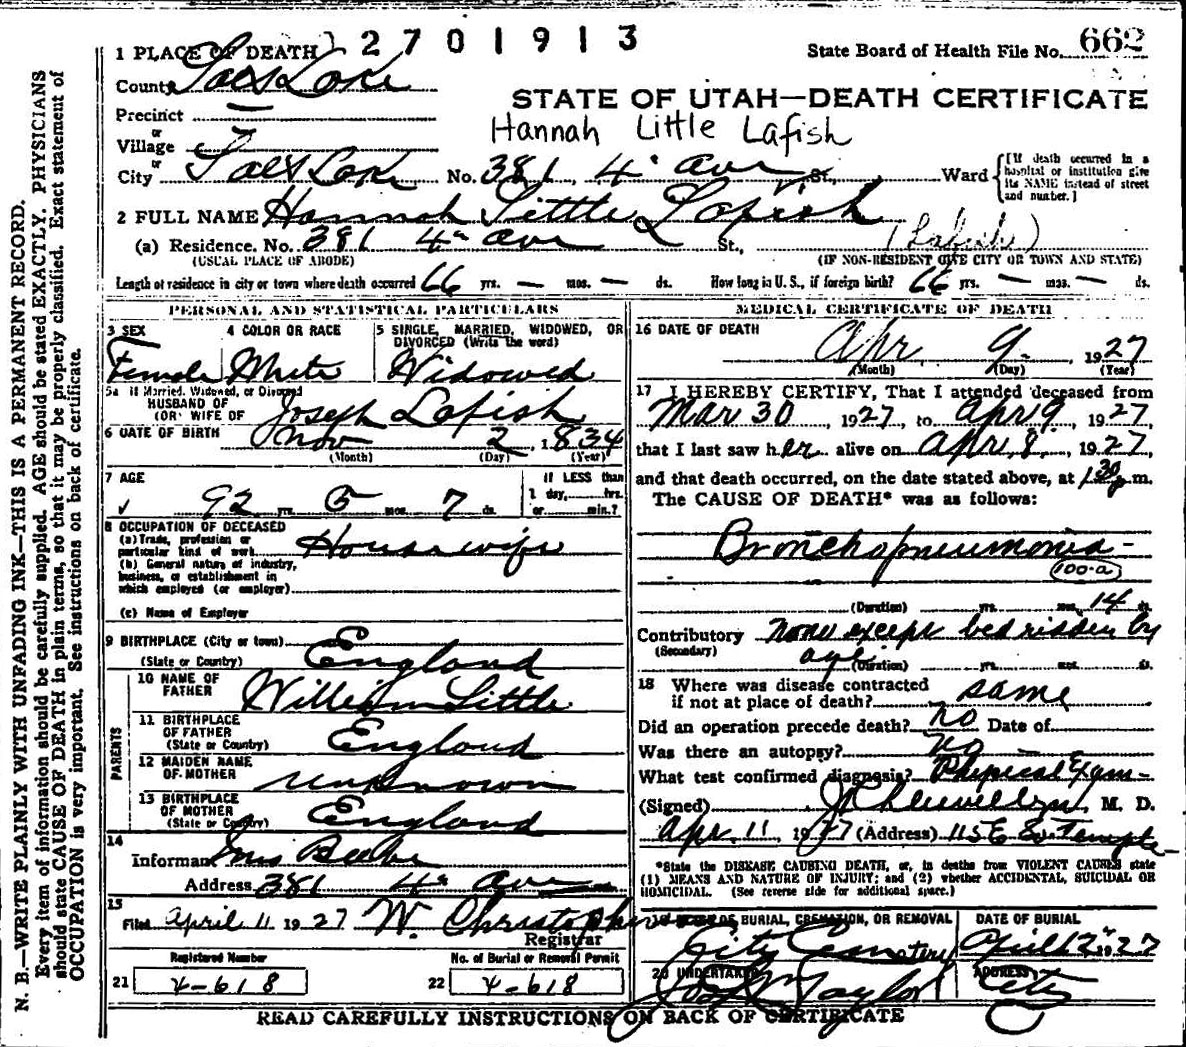 2701913
1 PLACE OF DEATH
State Board of Health File No. 662
County Salt Lake
STATE OF UTAH—DEATH CERTIFICATE
Precinct
Hannah Little Lafish
or
Village
or
City Salt Lake No. 381 4" Ave St., Ward
[If death occurred in a hospital or institution give its NAME instead of street and number.]
2 FULL NAME Hannah Little Lafish
(a) Residence. No. 381 4" Ave St., (Lafish)
(USUAL PLACE OF ABODE) (IF NON-RESIDENT GIVE CITY OR TOWN AND STATE)
Length of residence in city or town where death occurred 66 yrs. — mos. — ds. How long in U. S., if foreign birth? 66 yrs. — mos. — ds.
PERSONAL AND STATISTICAL PARTICULARS
3 SEX
Female
4 COLOR OR RACE
White
5 SINGLE, MARRIED, WIDOWED, OR DIVORCED (Write the word)
Widowed
5a If Married, Widowed, or Divorced
HUSBAND OF
(OR) WIFE OF Joseph Lafish
6 DATE OF BIRTH Nov 2, 1834
(Month) (Day) (Year)
7 AGE
92 yrs. 5 mos. 7 ds.
If LESS than
1 day, hrs.
or min.?
8 OCCUPATION OF DECEASED
(a) Trade, profession or
particular kind of work Housewife
(b) General nature of industry,
business, or establishment in
which employed (or employer)
(c) Name of Employer
9 BIRTHPLACE (City or town)
(State or Country) England
PARENTS
10 NAME OF
FATHER William Little
11 BIRTHPLACE
OF FATHER
(State or Country) England
12 MAIDEN NAME
OF MOTHER unknown
13 BIRTHPLACE
OF MOTHER
(State or Country) England
14
Informant Mrs Beebe
Address 381 4" Ave
15
Filed April 11 1927 W. Christopherson
Registrar
Registered Number
21 4-618
No. of Burial or Removal Permit
22 4-618
MEDICAL CERTIFICATE OF DEATH
16 DATE OF DEATH
Apr 9, 1927
(Month) (Day) (Year)
17 I HEREBY CERTIFY, That I attended deceased from
Mar 30, 1927 to Apr 9, 1927
that I last saw her alive on Apr. 8, 1927,
and that death occurred, on the date stated above, at 1:30 p.m.
The CAUSE OF DEATH* was as follows:
Bronchopneumonia—
100-a
(Duration) yrs. mos. 14 ds.
Contributory None except bedridden by
(Secondary) age (Duration) yrs. mos. ds.
18 Where was disease contracted
if not at place of death? same
Did an operation precede death? No Date of
Was there an autopsy? No
What test confirmed diagnosis? Physical Exam—
(Signed) J Llewellyn, M. D.
Apr. 11 1927 (Address) 115 E So Temple
*State the DISEASE CAUSING DEATH, or, in deaths from VIOLENT CAUSES state
(1) MEANS AND NATURE OF INJURY; and (2) whether ACCIDENTAL, SUICIDAL OR
HOMICIDAL. (See reverse side for additional space.)
19 PLACE OF BURIAL, CREMATION, OR REMOVAL
City Cemetery
DATE OF BURIAL
April 12" 1927
20 UNDERTAKER
Taylor
ADDRESS
City
READ CAREFULLY INSTRUCTIONS ON BACK OF CERTIFICATE
N. B.—WRITE PLAINLY WITH UNFADING INK—THIS IS A PERMANENT RECORD.
Every item of information should be carefully supplied. AGE should be stated EXACTLY. PHYSICIANS
should state CAUSE OF DEATH in plain terms, so that it may be properly classified. Exact statement of
OCCUPATION is very important. See instructions on back of certificate.